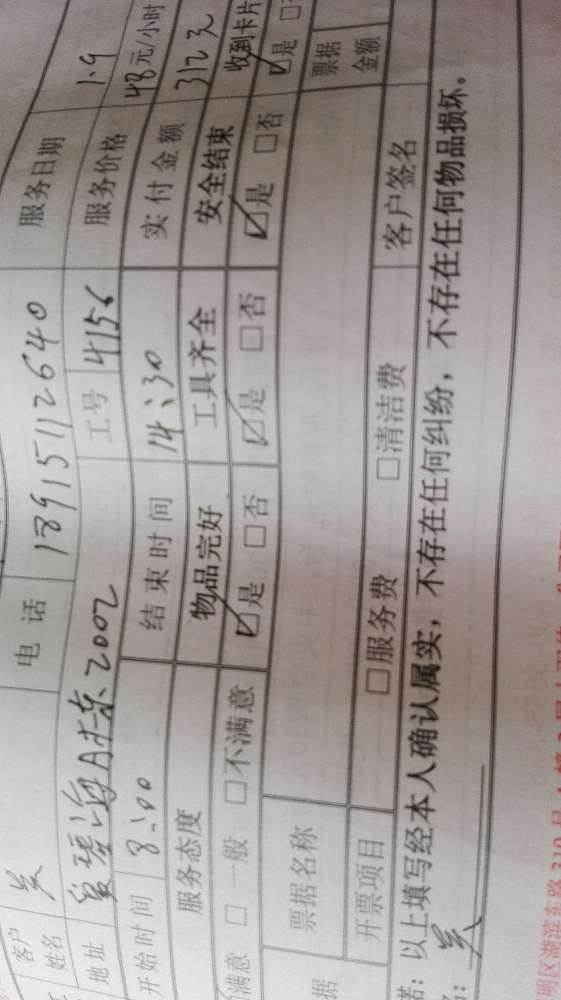 客户姓名 吴 电话 18915112640 服务日期 1.9
地址 A栋 2002 工号 4156 服务价格 48元/小时
开始时间 8:00 结束时间 14:30 实付金额 312元
服务态度 物品完好 工具齐全 安全结束 收到卡片
满意 □ 一般 □不满意 ☑是 □否 ☑是 □否 ☑是 □否 ☑是
票据名称 票据金额
开票项目 □服务费 □清洁费 客户签名
诺：以上填写经本人确认属实，不存在任何纠纷，不存在任何物品损坏。
吴
明区湖滨东路319号